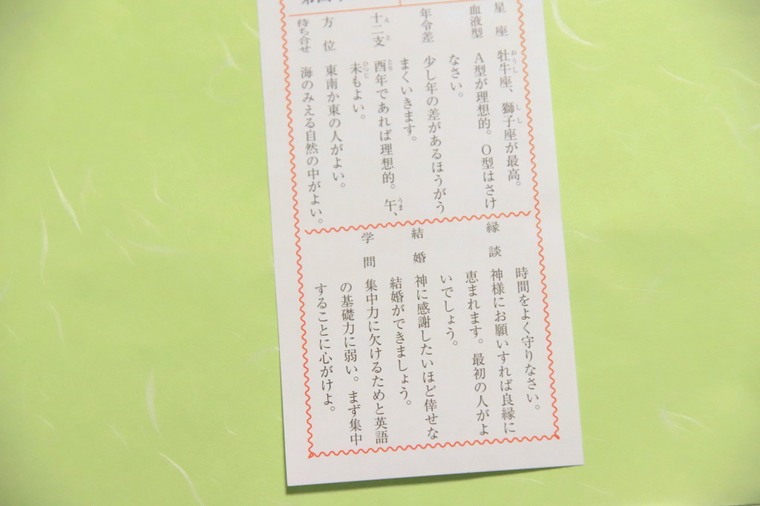 星座 牡牛座、獅子座が最高。
おうし しし
血液型 A型が理想的。O型はさけ
なさい。
年令差 少し年の差があるほうがう
まくいきます。
十二支 酉年であれば理想的。午、
えと とり うま
未もよい。
ひつじ
方位 東南か東の人がよい。
待ち合せ 海のみえる自然の中がよい。
時間をよく守りなさい。
縁談 神様にお願いすれば良縁に
恵まれます。最初の人がよ
いでしょう。
結婚 神に感謝したいほど倖せな
結婚ができましょう。
学問 集中力に欠けるためと英語
の基礎力に弱い。まず集中
することに心がけよ。